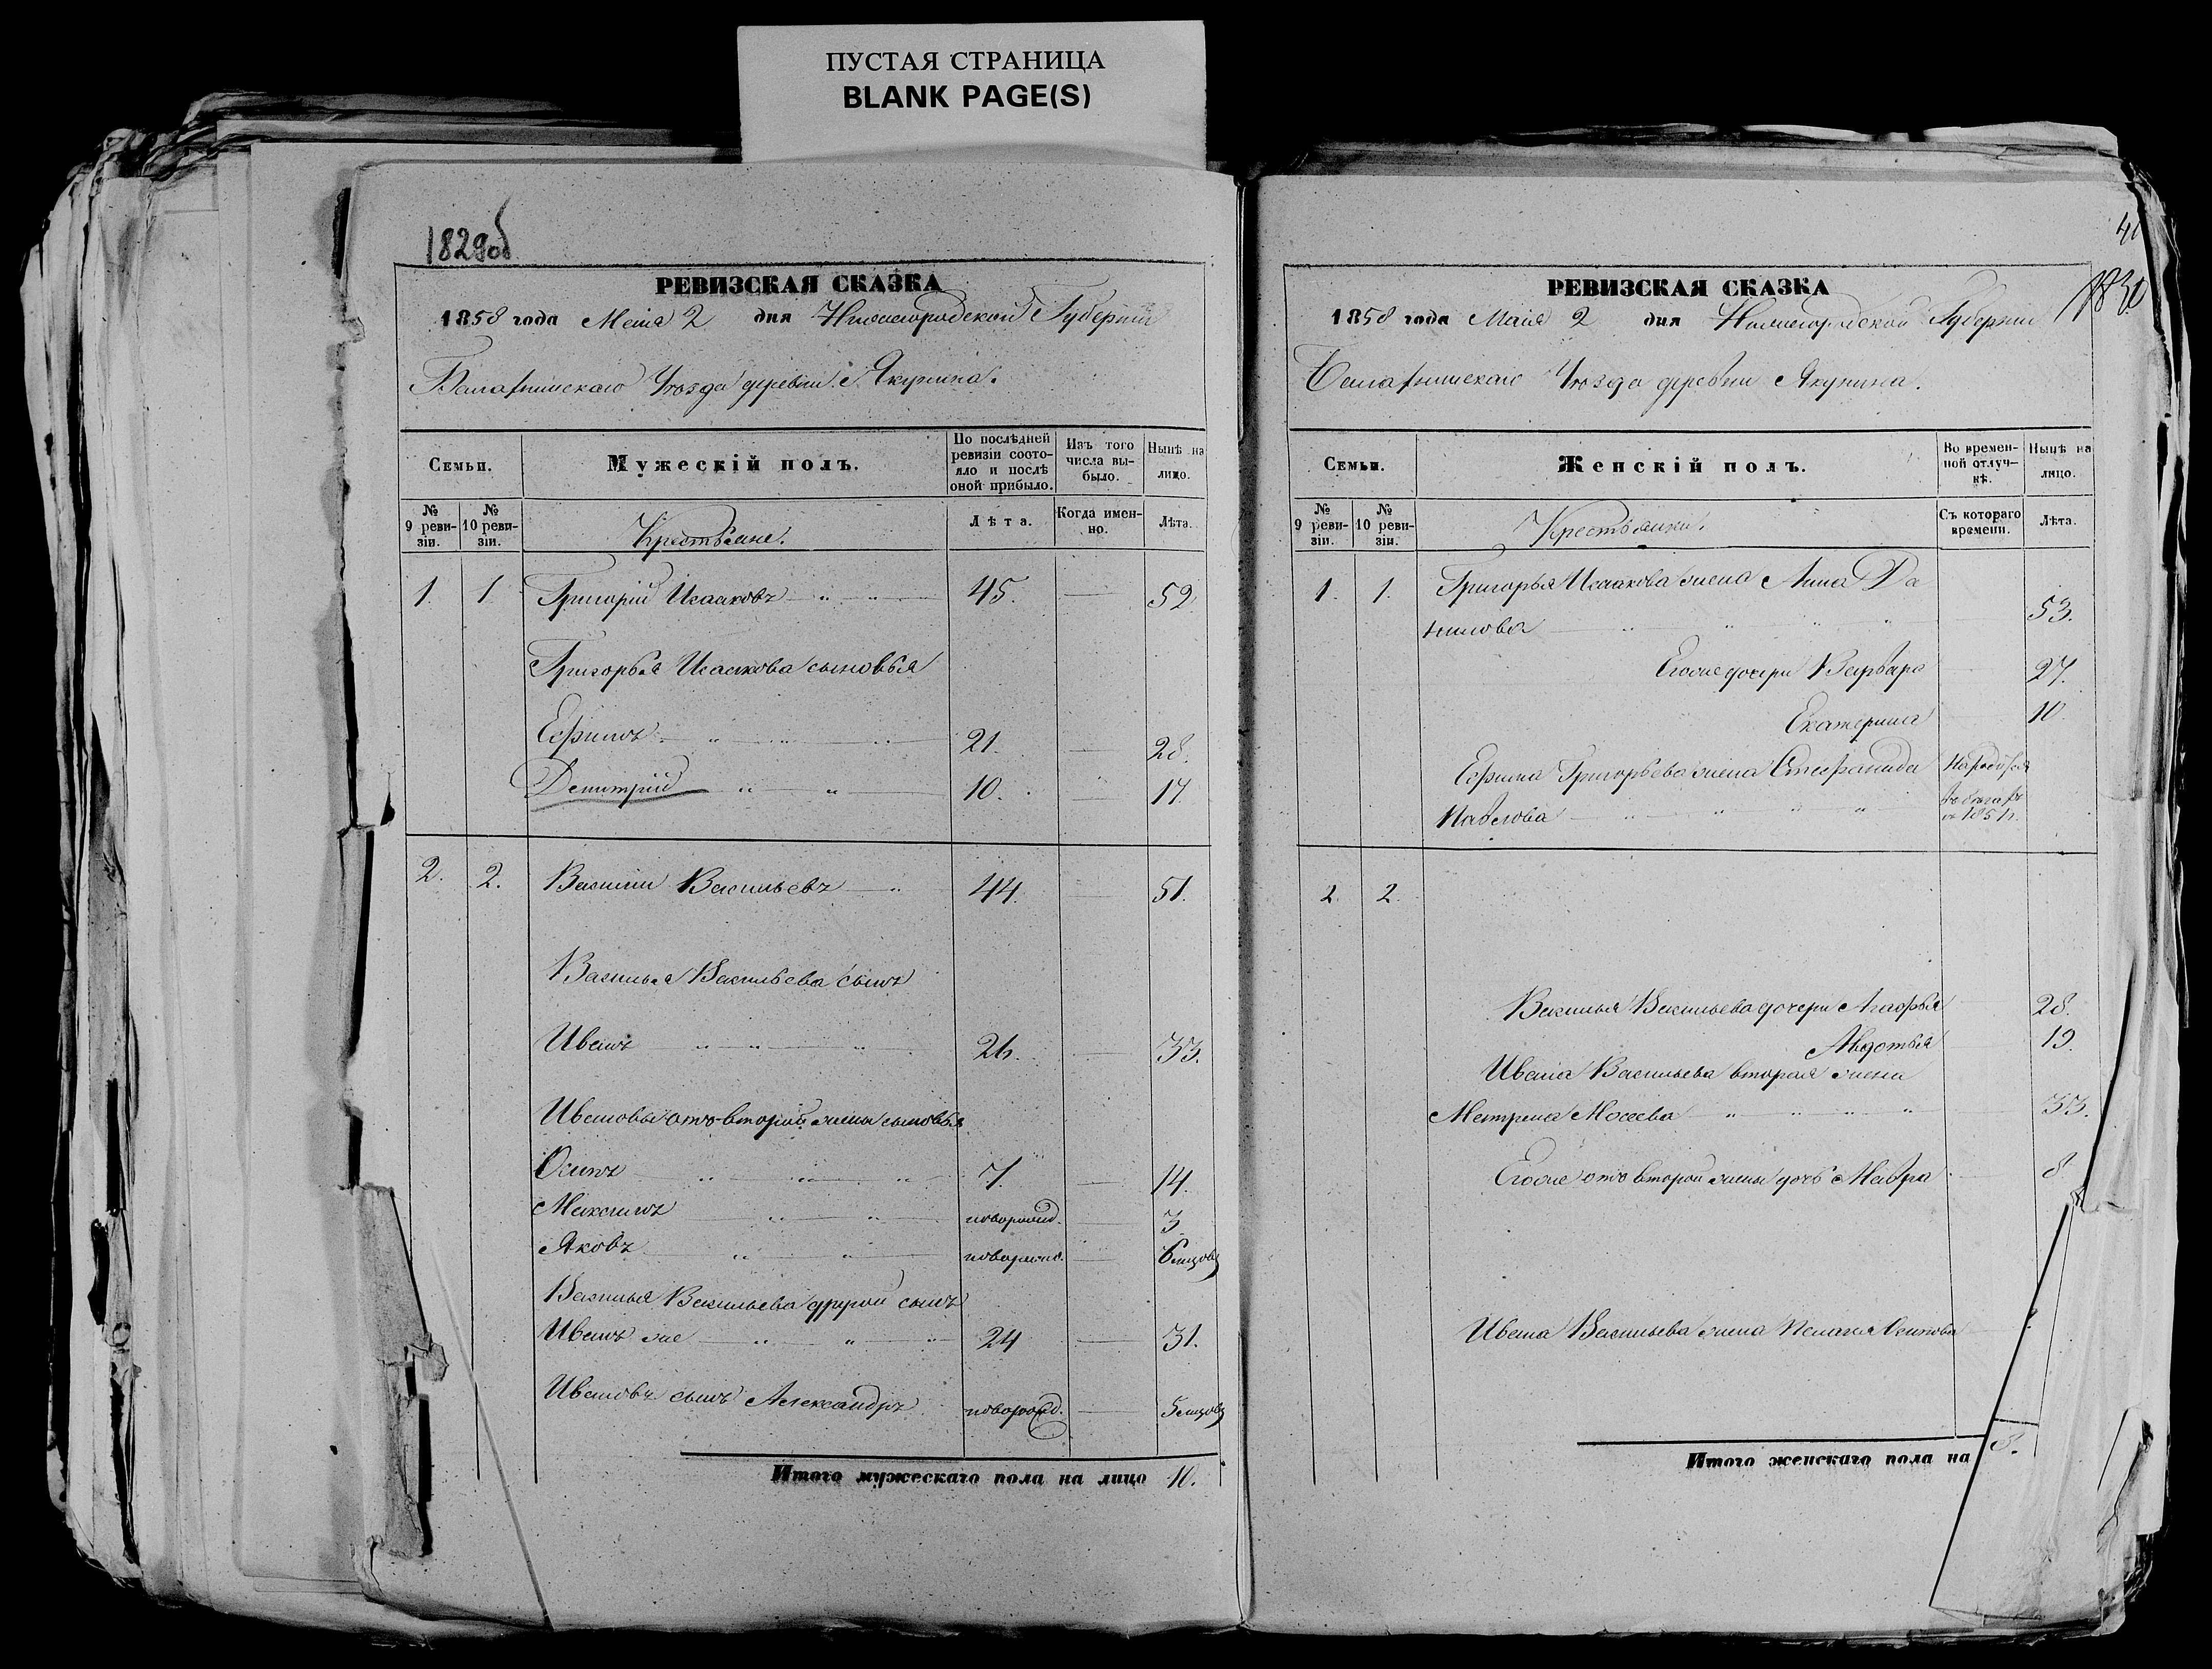 ПУСТАЯ СТРАНИЦА
BLANK PAGE(S)
1829об
РЕВИЗСКАЯ СКАЗКА
1858 года Маия 2 дня Нижегородской Губернии
Балахнинскаго Уезда деревни Якунина.
Семьи.
Мужескій полъ.
По послѣдней ревизіи состояло и послѣ оной прибыло.
Изъ того числа выбыло.
Нынѣ на лицо.
№ 9 ревизіи.
№ 10 ревизіи.
Крестьяне.
Лѣта.
Когда именно.
Лѣта.
1. 1. Григорій Исааковъ 45. 52.
Григорья Исаакова сыновья
Ефимъ 21. 28.
Демитрій 10. 17.
2. 2. Василій Васильевъ 44. 51.
Василья Васильева сынъ
Иванъ 26. 33.
Ивановы отъ второй жены сыновья
Осипъ 7. 14.
Максимъ новорожд. 3
Яковъ новорожд. 6 мцовъ
Василья Васильева другой сынъ
Иванъ же 24 31.
Ивановъ сынъ Александръ новорожд. 5 мцовъ
Итого мужескаго пола на лицо 10.
41
1830
РЕВИЗСКАЯ СКАЗКА
1858 года Маія 2 дня Нижегородской Губернии
Балахнинскаго Уезда деревни Якунина.
Семьи.
Женскій полъ.
Во временной отлучкѣ.
Нынѣ на лицо.
№ 9 ревизіи.
№ 10 ревизіи.
Крестьянки.
Съ котораго времени.
Лѣта.
1. 1. Григорья Исаакова жена Анна Да
нилова 53.
Егоже дочери Варвара 27.
Екатерина 10.
Ефима Григорьева жена Стефанида
Павлова
2. 2.
Василья Васильева дочери Агафья 28.
Авдотья 19.
Ивана Васильева вторая жена
Матрена Мосеева 33.
Егоже отъ второй жены дочь Мавра 8
Ивана Васильева жена Пелагея Осипова
Итого женскаго пола на 8.